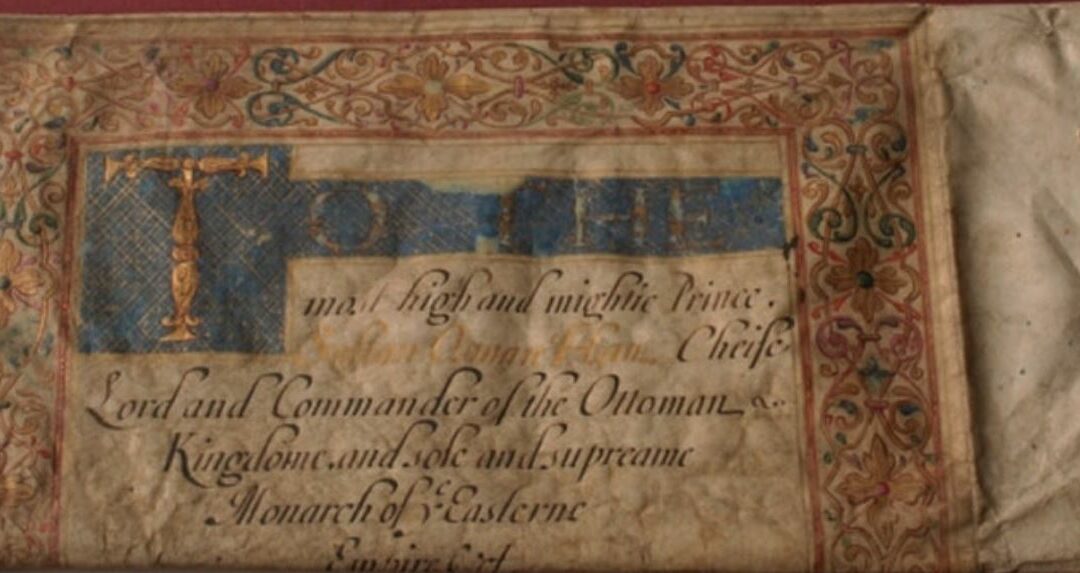 TO THE
most high and mightie Prince.
Sultan Osman Han Cheife
Lord and Commander of the Ottoman
Kingdome, and sole and supreame
Monarch of yᵉ Easterne
Empire &c